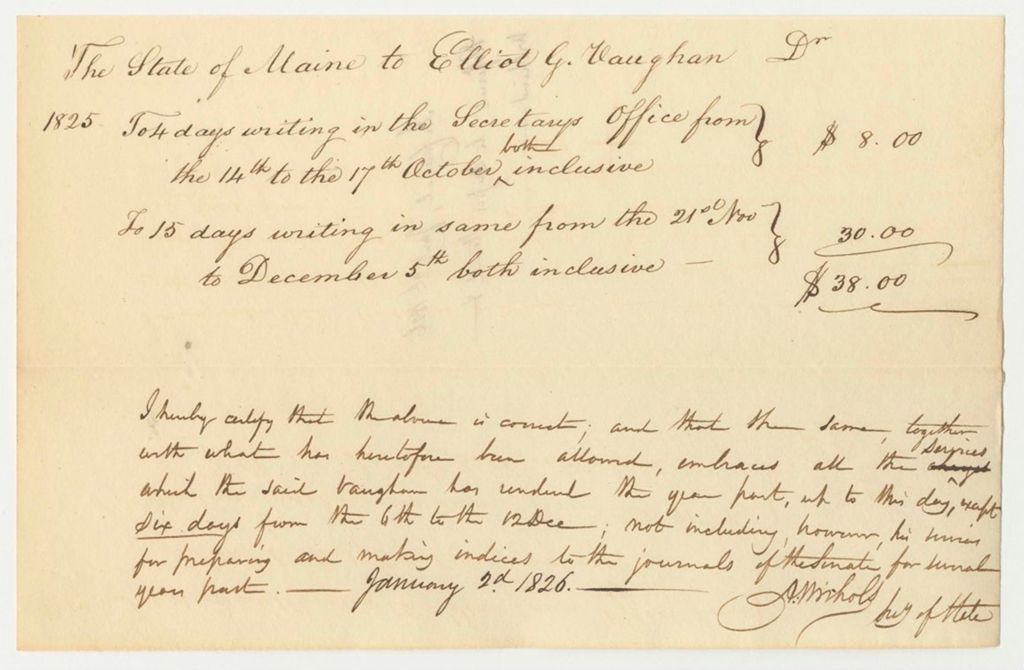 The State of Maine to Elliot G. Vaughan Dr
1825 To 4 days writing in the Secretarys Office from
the 14th to the 17th October both inclusive $ 8.00
To 15 days writing in same from the 21st Nov
to December 5th both inclusive — 30.00
$ 38.00
I hereby certify that the above is correct; and that the same, together
with what has heretofore been allowed, embraces all the services
which the said Vaughan has rendered the year past, up to this day, except
six days from the 6th to the 12 Dec; not including, however, his services
for preparing and making indices to the journals of the Senate for several
years past. — January 2d. 1826. —
A. Nichols Secy of State